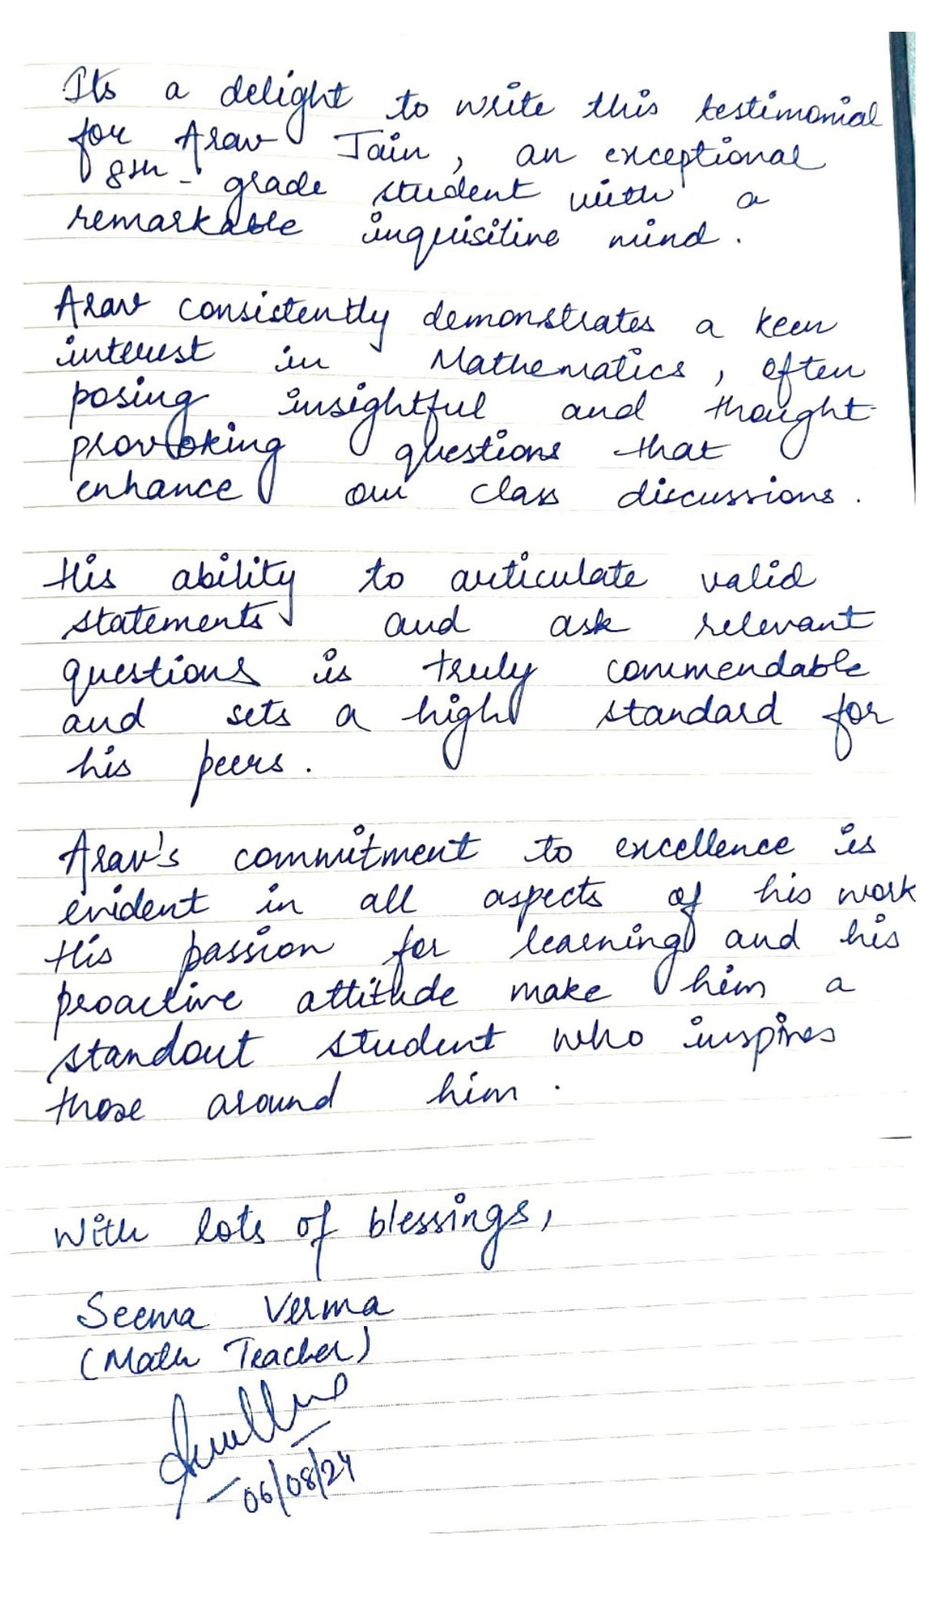 Its a delight to write this testimonial
for Arav Jain, an exceptional
8th-grade student with a
remarkable inquisitive mind.
Arav consistently demonstrates a keen
interest in Mathematics, often
posing insightful and thought-
provoking questions that
enhance our class discussions.
His ability to articulate valid
statements and ask relevant
questions is truly commendable
and sets a high standard for
his peers.
Arav's commitment to excellence is
evident in all aspects of his work
His passion for learning and his
proactive attitude make him a
standout student who inspires
those around him.
With lots of blessings,
Seema Verma
(Math Teacher)
06/08/24